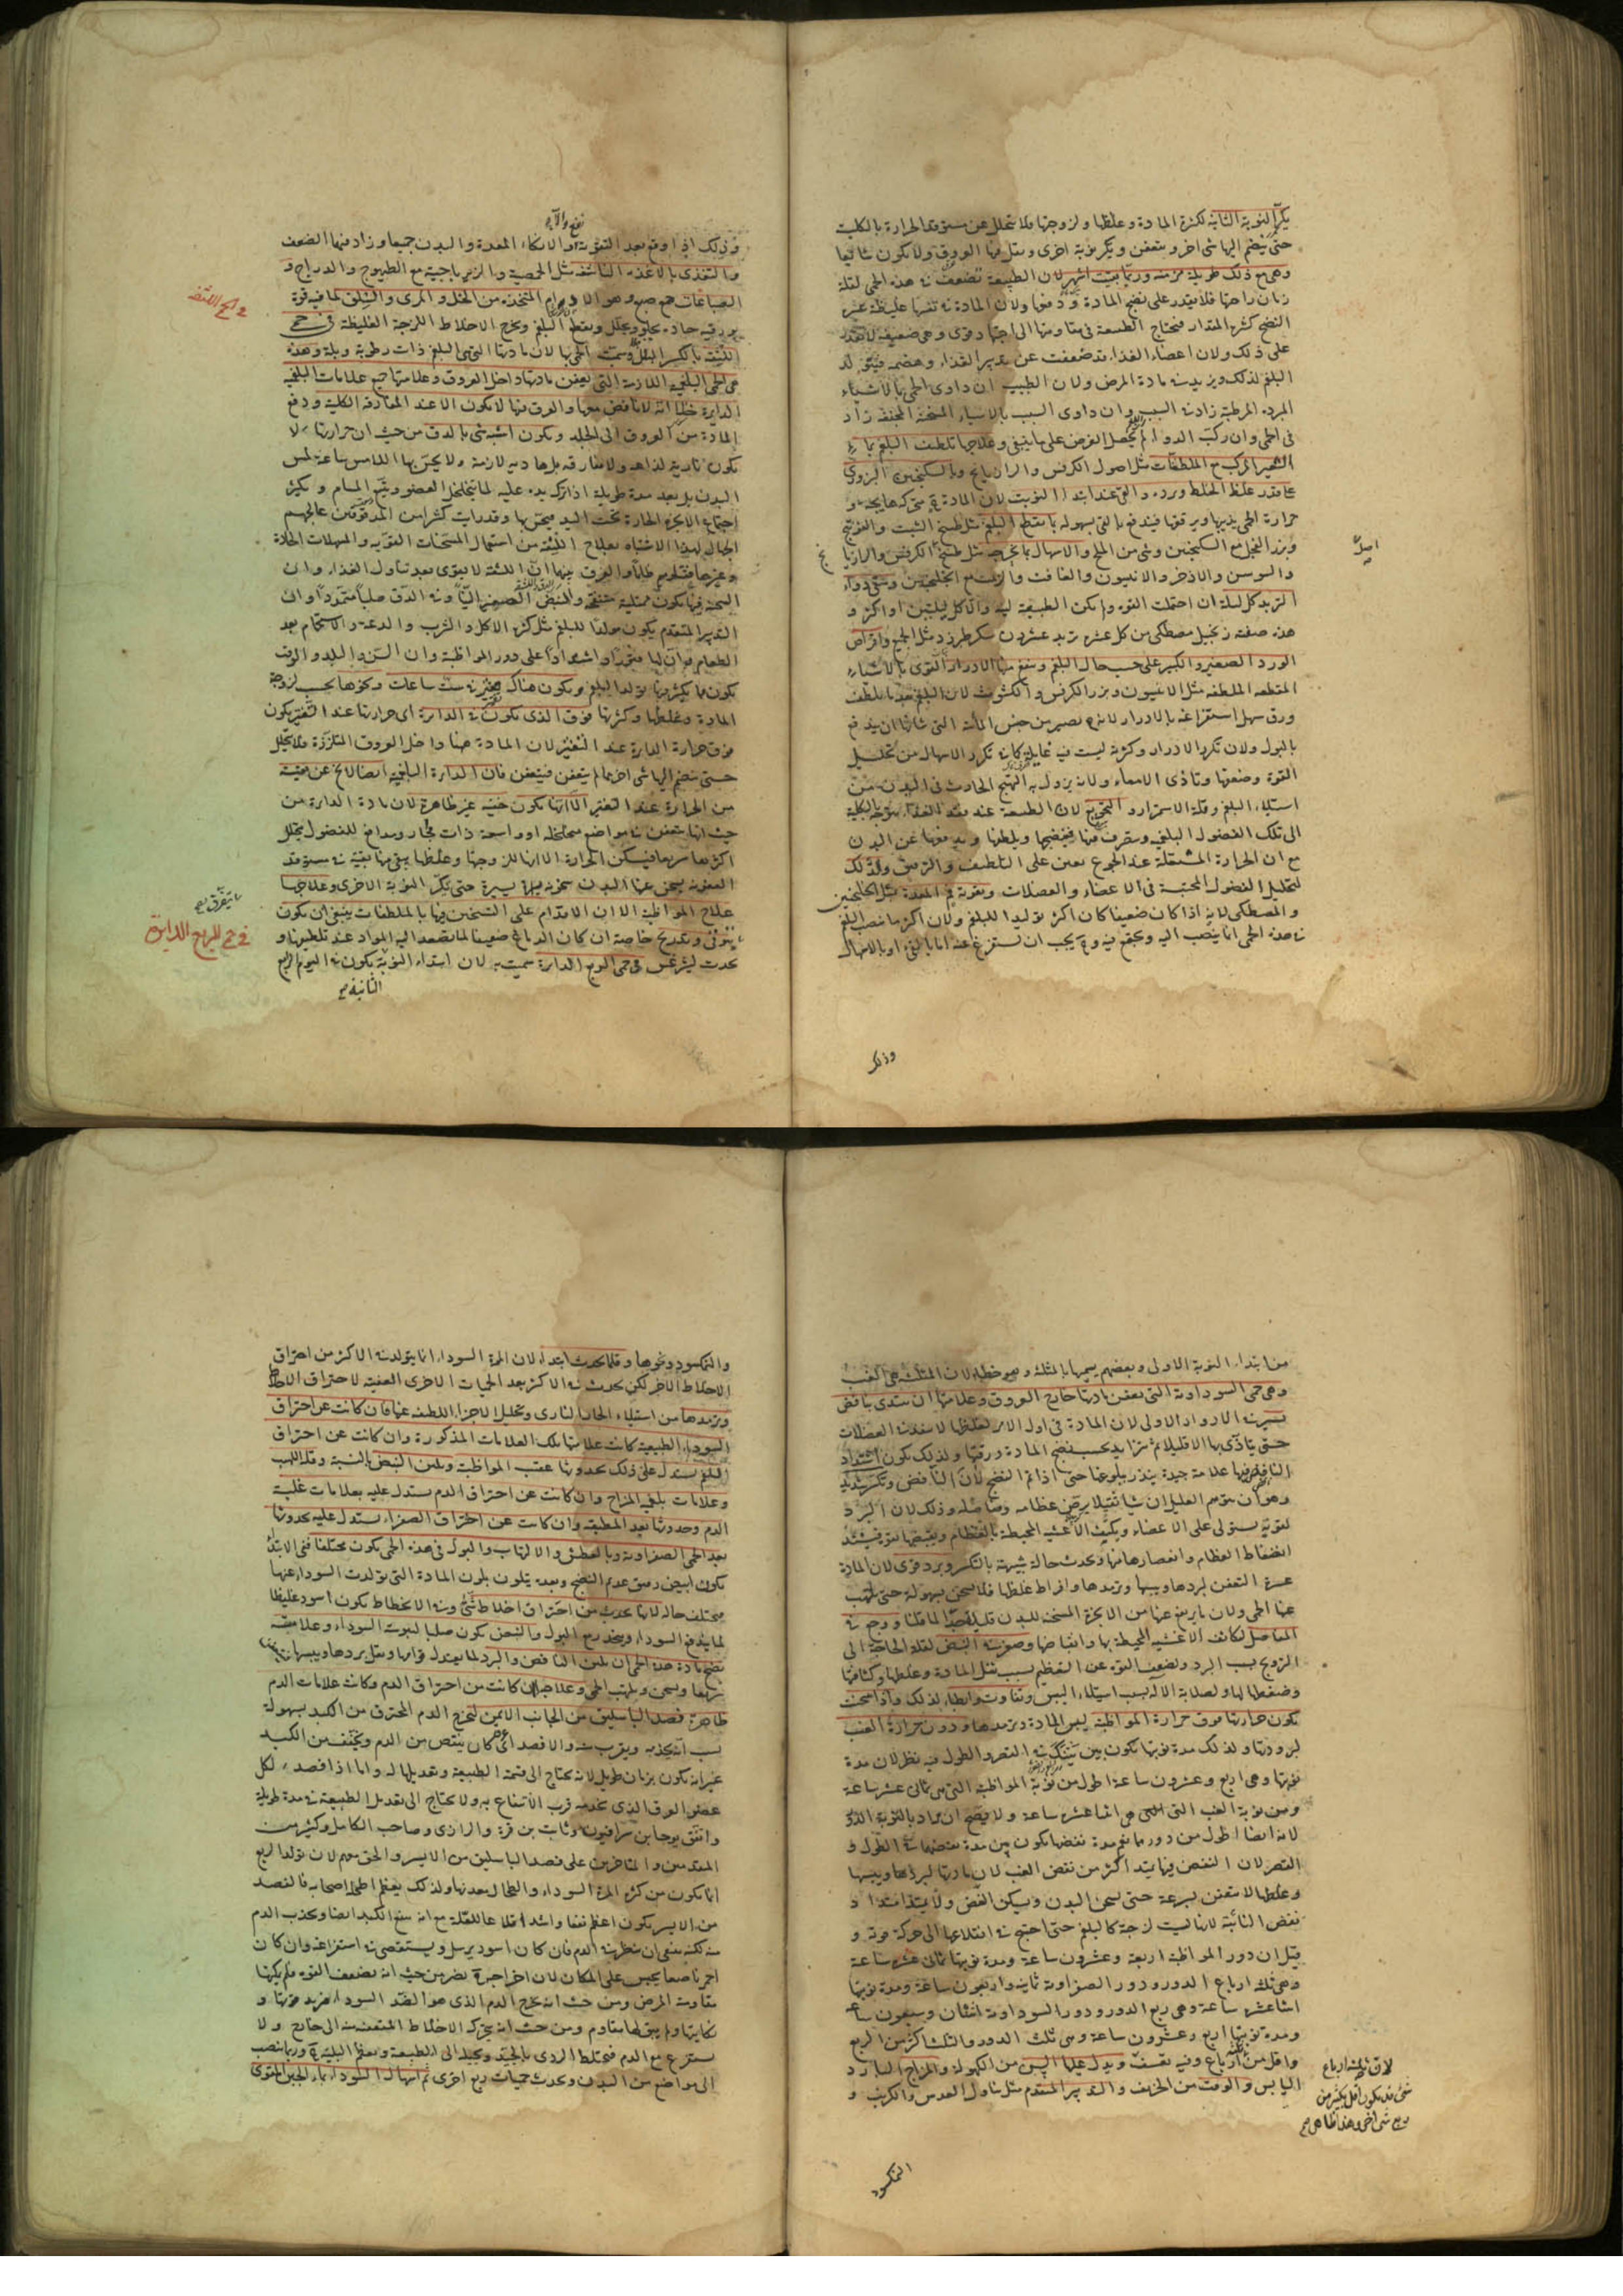 يكرر النوبة الثانية لكثرة المادة وغلظها ولزوجتها فلا تتحلل عن مستوقد الحرارة بالكلية
حتى ينضم اليها شئ اخر ويتعفن ويكر نوبة اخرى
وهي مع ذلك طويلة مزمنة وربما بقيت اشهرا لان الطبيعة تضعف في هذه الحمى لقلة
زمان راحتها فلا يقدر على نضج المادة ودفعها ولان المادة في نفسها غليظة عسر
النضج كثير المقدار فتحتاج الطبيعة في مقاومتها الى اجتهاد قوى وهي ضعيفة لا تقدر
على ذلك ولان اعضاء الغذاء قد ضعفت عن تدبير الغذاء وهضمه فيتولد
البلغم لذلك ويزيد في مادة المرض ولان الطبيب ان داوى الحمى بالاشياء
المبردة المرطبة زاد في السبب وان داوى السبب بالاشياء المسخنة المجففة زاد
في الحمى وان ركب الدواء لم يحصل الغرض على ما ينبغي وعلاجها تلطيف البلغم بماء
الشعير المركب مع الملطفات مثل اصول الكرفس والرازيانج والسكنجبين البزوري
على قدر غلظ الخلط وبرده والقئ عند ابتداء النوبة لان المادة ح متحركة هايجة و
حرارة الحمى يذيبها ويرققها فيندفع بالقئ بسهولة بما يقطع البلغم مثل طبيخ الشبت والفوتنج
وبزر الفجل مع السكنجبين وشئ من الملح والاسهال بما يخرجه مثل طبيخ الكرفس والرازيا
نج
والسوسن والاذخر والانيسون والغافت والزبيب مع الجلنجبين وسقى دواء
التربد كل ليلة ان احتملت القوة ولم تكن الطبيعة لينة والا كل ليلتين او اكثر و
هذه صفته زنجبيل مصطكي من كل عشرة تربد عشرون سكر طبرزد مثل الجميع واقراص
الورد الصغير والكبير على حسب حال البلغم وينفع منها الادرار القوى بالاشياء
المقطعة الملطفة مثل الانيسون وبزر الكرفس والكشوث لان البلغم بعد ما يلطف
ورق سهل استفراغه بالادرار لانه يصير من جنس المائية التي شانها ان يندفع
بالبول ولان تكرر الادرار وكثرته ليست فيه غايلة كما في تكرر الاسهال من تحليل
القوة وضعفها وتأذى الامعاء ولانه يزول به التهيج الحادث في البدن من
استيلاء البلغم وقلة الاستمراء والتجويع لان الطبيعة عند فقد الغذاء يتوجه بالكلية
الى تلك الفضول البلغمية ويتصرف فيها فينضجها ويلطفها ويدفعها عن البدن
مع ان الحرارة المشتعلة عند الجوع تعين على التلطيف والترقيق والدلك
لتحليل الفضول المحتبسة في الاعضاء والعضلات وتقوية فم المعدة مثل الجلنجبين
والمصطكي لانه اذا كان ضعيفا كان اكثر توليدا للبلغم ولان اكثر ما ينصب البلغم
في هذه الحمى انما ينصب اليه ويجتمع فيه وح يجب ان يستفرغ عنه اما بالقئ او بالاسهال
وذلك
نفع والآ
وذلك اذا وقع بعد التقوية والا انكاء المعدة والبدن جميعا وزاد فيها الضعف
والتغذى بالاغذية الناشفة مثل الحمصية والزيرباجية مع الطيهوج والدراج و
الصباغات جمع صبغ وهو الادام المتخذ من الخل والمرى والسلق لما فيه قوة
بورقية حادة يجلو ويحلل ويقطع البلغم ويخرج الاخلاط اللزجة الغليظة في حمى
اللثقة بالكسر البلل وسميت الحمى بها لان مادتها التي هي البلغم ذات رطوبة وبلة وهذه
هي الحمى البلغمية اللازمة التي يعفن مادتها داخل العروق وعلامتها جميع علامات البلغمية
الدايرة خلا انه لا نافض معها والعرق فيها لا يكون الا عند المفارقة الكلية ودفع
المادة من العروق الى الجلد ويكون اشبه شئ بالدق من حيث ان حرارتها لا
يكون نارية لذاعة ولا مفارقة بل هادية لازمة ولا يحس بها اللامس ساعة لمس
البدن بل بعد مدة طويلة اذا ترك يده عليه لما يتخلخل العضو ويتسع المسام ويكثر
اجتماع الابخرة الحارة تحت اليد فيحس بها وقد رايت كثيرا من المدقوقين عالجهم
الجهال لهذا الاشتباه بعلاج اللثقة من استعمال المسخنات القوية والمسهلات الحادة
وغيرها فقتلوهم ظلما والفرق بينهما ان اللثقة لا يقوى بعد تناول الغذاء وان
السحنة فيها يكون ممتلية منتفخة والنبض الصغير لينا وفي الدق صلبا متمددا وان
التدبير المتقدم يكون مولدا للبلغم مثل كثرة الاكل والشرب والدعة والاستحمام بعد
الطعام وان لها فتورا واشتدادا على دور المواظبة وان السن والبلد والوقت
يكون مما يكثر فيها تولد البلغم ويكون هناك تفتير في ست ساعات ونحوها بحسب لزوجة
المادة وغلظها وكثرتها فوق الذي يكون في الدايرة اي حرارتها عند التفتير يكون
فوق حرارة الدايرة عند التفتير لان المادة هنا داخل العروق المتلززة فلا يتحلل
حتى ينضم اليها شئ اخر مما لم يتعفن فيتعفن فان الدايرة البلغمية ايضا لا يخ عن بقية
من الحرارة عند التفتير الا انها يكون خفية غير ظاهرة لان مادة الدايرة من
حيث انها يتعفن في مواضع متخلخلة او واسعة ذات مجار ومدافع للفضول يتحلل
اكثرها سريعا فيسكن الحرارة الا انها للزوجتها وغلظها يبقى منها بقية في مستوقد
العفونة يسخن عنها البدن سخونة يسيرة حتى يكر النوبة الاخرى وعلاجها
علاج المواظبة الا ان الاقدام على التسخين فيها بالملطفات ينبغي ان يكون
بتوقى وتدريج خاصة ان كان الدماغ ضعيفا لما يتصعد اليه المواد عند تلطيفها و
يحدث ليثرغس في حمى الربع الدايرة سميت به لان ابتداء النوبة يكون في اليوم الرابع
الثانية
في حمى اللثقة
في حمى الربع الدايرة
من ابتداء النوبة الاولى وبعضهم يسميها بالمثلثة وهو خطاء لان المثلثة هي الغب
وهي حمى السوداوية التي يعفن مادتها خارج العروق وعلامتها ان يبتدى بنافض
يسير في الادوار الاولى لان المادة في اول الامر لغلظها لا ينفذ في العضلات
حتى يتأذى بها الا قليلا ثم تزايد بحسب نضج المادة ورقتها ولذلك يكون اشتداد
النافض فيها علامة جيدة ينذر ببلوغها حتى اذا تم النضج
وهو ان يتوهم العليل ان شيأ ثقيلا يرض عظامه ومفاصله وذلك لان البرد
لقوته يستولى على الاعضاء ويكثف الاغشية المحيطة بالعظام ويقبضها بقوة فيشتد
انضغاط العظام وانعصارها منها ويحدث حالة شبيهة بالتكسر وبرد قوى لان المادة
عسرة التعفن لبردها ويبسها وترمدها وافراط غلظها فلا يسخن بسهولة حتى يلتهب
عنها الحمى ولان ما يرتفع عنها من الابخرة المسخنة للبدن قليلة جدا لما قلنا ووجع في
المفاصل لتكاثف الاغشية المحيطة بها وانقباضها وصغر في النبض لقلة الحاجة الى
الترويح بسبب البرد ولضعف القوة عن التعظيم بسبب ثقل المادة وغلظها وكثافتها
وضغطها لها ولصلابة الالة بسبب استيلاء اليبس وتفاوت وابطاء لذلك واذا سخنت
يكون حرارتها فوق حرارة المواظبة ليبس المادة وترمدها ودون حرارة الغب
لبرودتها ولذلك مدة نوبتها يكون بين بين في القصر والطول فيه نظر لان مدة
نوبتها وهي اربع وعشرون ساعة اطول من نوبة المواظبة التي هي ثماني عشر ساعة
ومن نوبة الغب التي هي اثنا عشر ساعة ولا يصح ان يراد بالنوبة الدور
لانه ايضا اطول من دورهما نعم مدة نفضها يكون بين مدة نفضهما في الطول و
القصر لان النفض فيها يمتد اكثر من نفض الغب لان مادتها لبردها ويبسها
وغلظها لا يتعفن بسرعة حتى يسخن البدن ويسكن النفض ولا يمتد امتداد
نفض النائبة لانها ليست لزجة كالبلغم حتى احتيج في اقتلاعها الى حركة قوية و
قيل ان دور المواظبة اربعة وعشرون ساعة ومدة نوبتها ثماني عشر ساعة
وهي ثلثة ارباع الدور ودور الصفراوية ثمانية واربعون ساعة ومدة نوبتها
اثنا عشر ساعة وهي ربع الدور ودور السوداوية اثنان وسبعون ساعة
ومدة نوبتها اربع وعشرون ساعة وهي ثلث الدور والثلث اكثر من الربع
واقل من ثلثة ارباع وفيه تعسف ويدل عليها السن من الكهولة والمزاج البارد
اليابس والوقت من الخريف والتدبير المتقدم مثل تناول العدس والكرنب و
لان ثلثة ارباع
شئ قد يكون اقل بكثير من
ربع شئ اخر وهذا ظاهر
النمكسود
والنمكسود ونحوها وقلما يحدث ابتداء لان المرة السوداء انما يتولد في الاكثر من احتراق
الاخلاط الاخر لكن يحدث في الاكثر بعد الحميات الاخرى العفنية لاحتراق الاخلاط
وترمدها من استيلاء الحار النارى وتحليل الاجزاء اللطيفة عنها فان كانت عن احتراق
السوداء الطبيعية كانت علاماتها تلك العلامات المذكورة وان كانت عن احتراق
البلغم يستدل على ذلك بحدوثها عقيب المواظبة وبلين النبض بالنسبة وقلة اللهيب
وعلامات بلغمى المزاج وان كانت عن احتراق الدم يستدل عليه بعلامات غلبة
الدم وحدوثها بعد المطبقة وان كانت عن احتراق الصفراء يستدل عليه بحدوثها
بعد الحمى الصفراوية وبالعطش والالتهاب والبول في هذه الحمى يكون مختلفا ففي الابتداء
يكون ابيض رقيق عديم النضج وبعده يتلون بلون المادة التي تولدت السوداء عنها
فيختلف حاله لانها يحدث من احتراق اخلاط شتى وفي الانحطاط يكون اسود غليظا
لما يندفع السوداء وينحدر مع البول والنبض يكون صلبا ليبوسة السوداء وعلامة
نضج مادة هذه الحمى ان يلين النافض والبرد لما يعتدل قوامها ويقل بردها ويبسها
ويسخن ويلتهب الحمى وعلاجها ان كانت من احتراق الدم وكانت علامات الدم
ظاهرة فصد الباسليق من الجانب الايمن ليخرج الدم المحترق من الكبد بسهولة
غير انه يكون بزمان طويل لانه يحتاج الى قسمة الطبيعة وتعديلها له واما اذا فصد لكل
عضو العرق الذي يخدمه قرب الانتفاع به ولا يحتاج الى تعديل الطبيعة في مدة طويلة
واتفق يوحنا بن سرافيون وثابت بن قرة والرازى وصاحب الكامل وكثير من
المتقدمين والمتاخرين على فصد الباسليق من الايسر والحق معهم لان تولد الربع
انما يكون من كثرة المرة السوداء والطحال معدنها ولذلك يعظم اطحلة اصحابه فالفصد
من الايسر يكون اعظم نفعا واشد اقلاعا للعلة مع انه ينفع الكبد ايضا ويجذب الدم
منه لكنه ينبغي ان ينظر في الدم فان كان اسود يرسل ويستقصى في استفراغه وان كان
احمر ناصعا يحبس على المكان لان اخراجه ح يضر من حيث انه يضعف القوة فلم يمكنها
مقاومة المرض ومن حيث انه يخرج الدم الذي هو الضد السوداء فيزيد قوتها و
نكايتها ولم يبق لها مقاوم ومن حيث انه يتحرك الاخلاط المتعفنة الى خارج ولا
يستفرغ مع الدم فيختلط الردى بالجيد ويحيله الى الطبيعة ويعظم البلية ح وربما ينصب
الى مواضع من البدن ويحدث حميات ربع اخرى ثم اسهال السوداء بماء الجبن المقوى